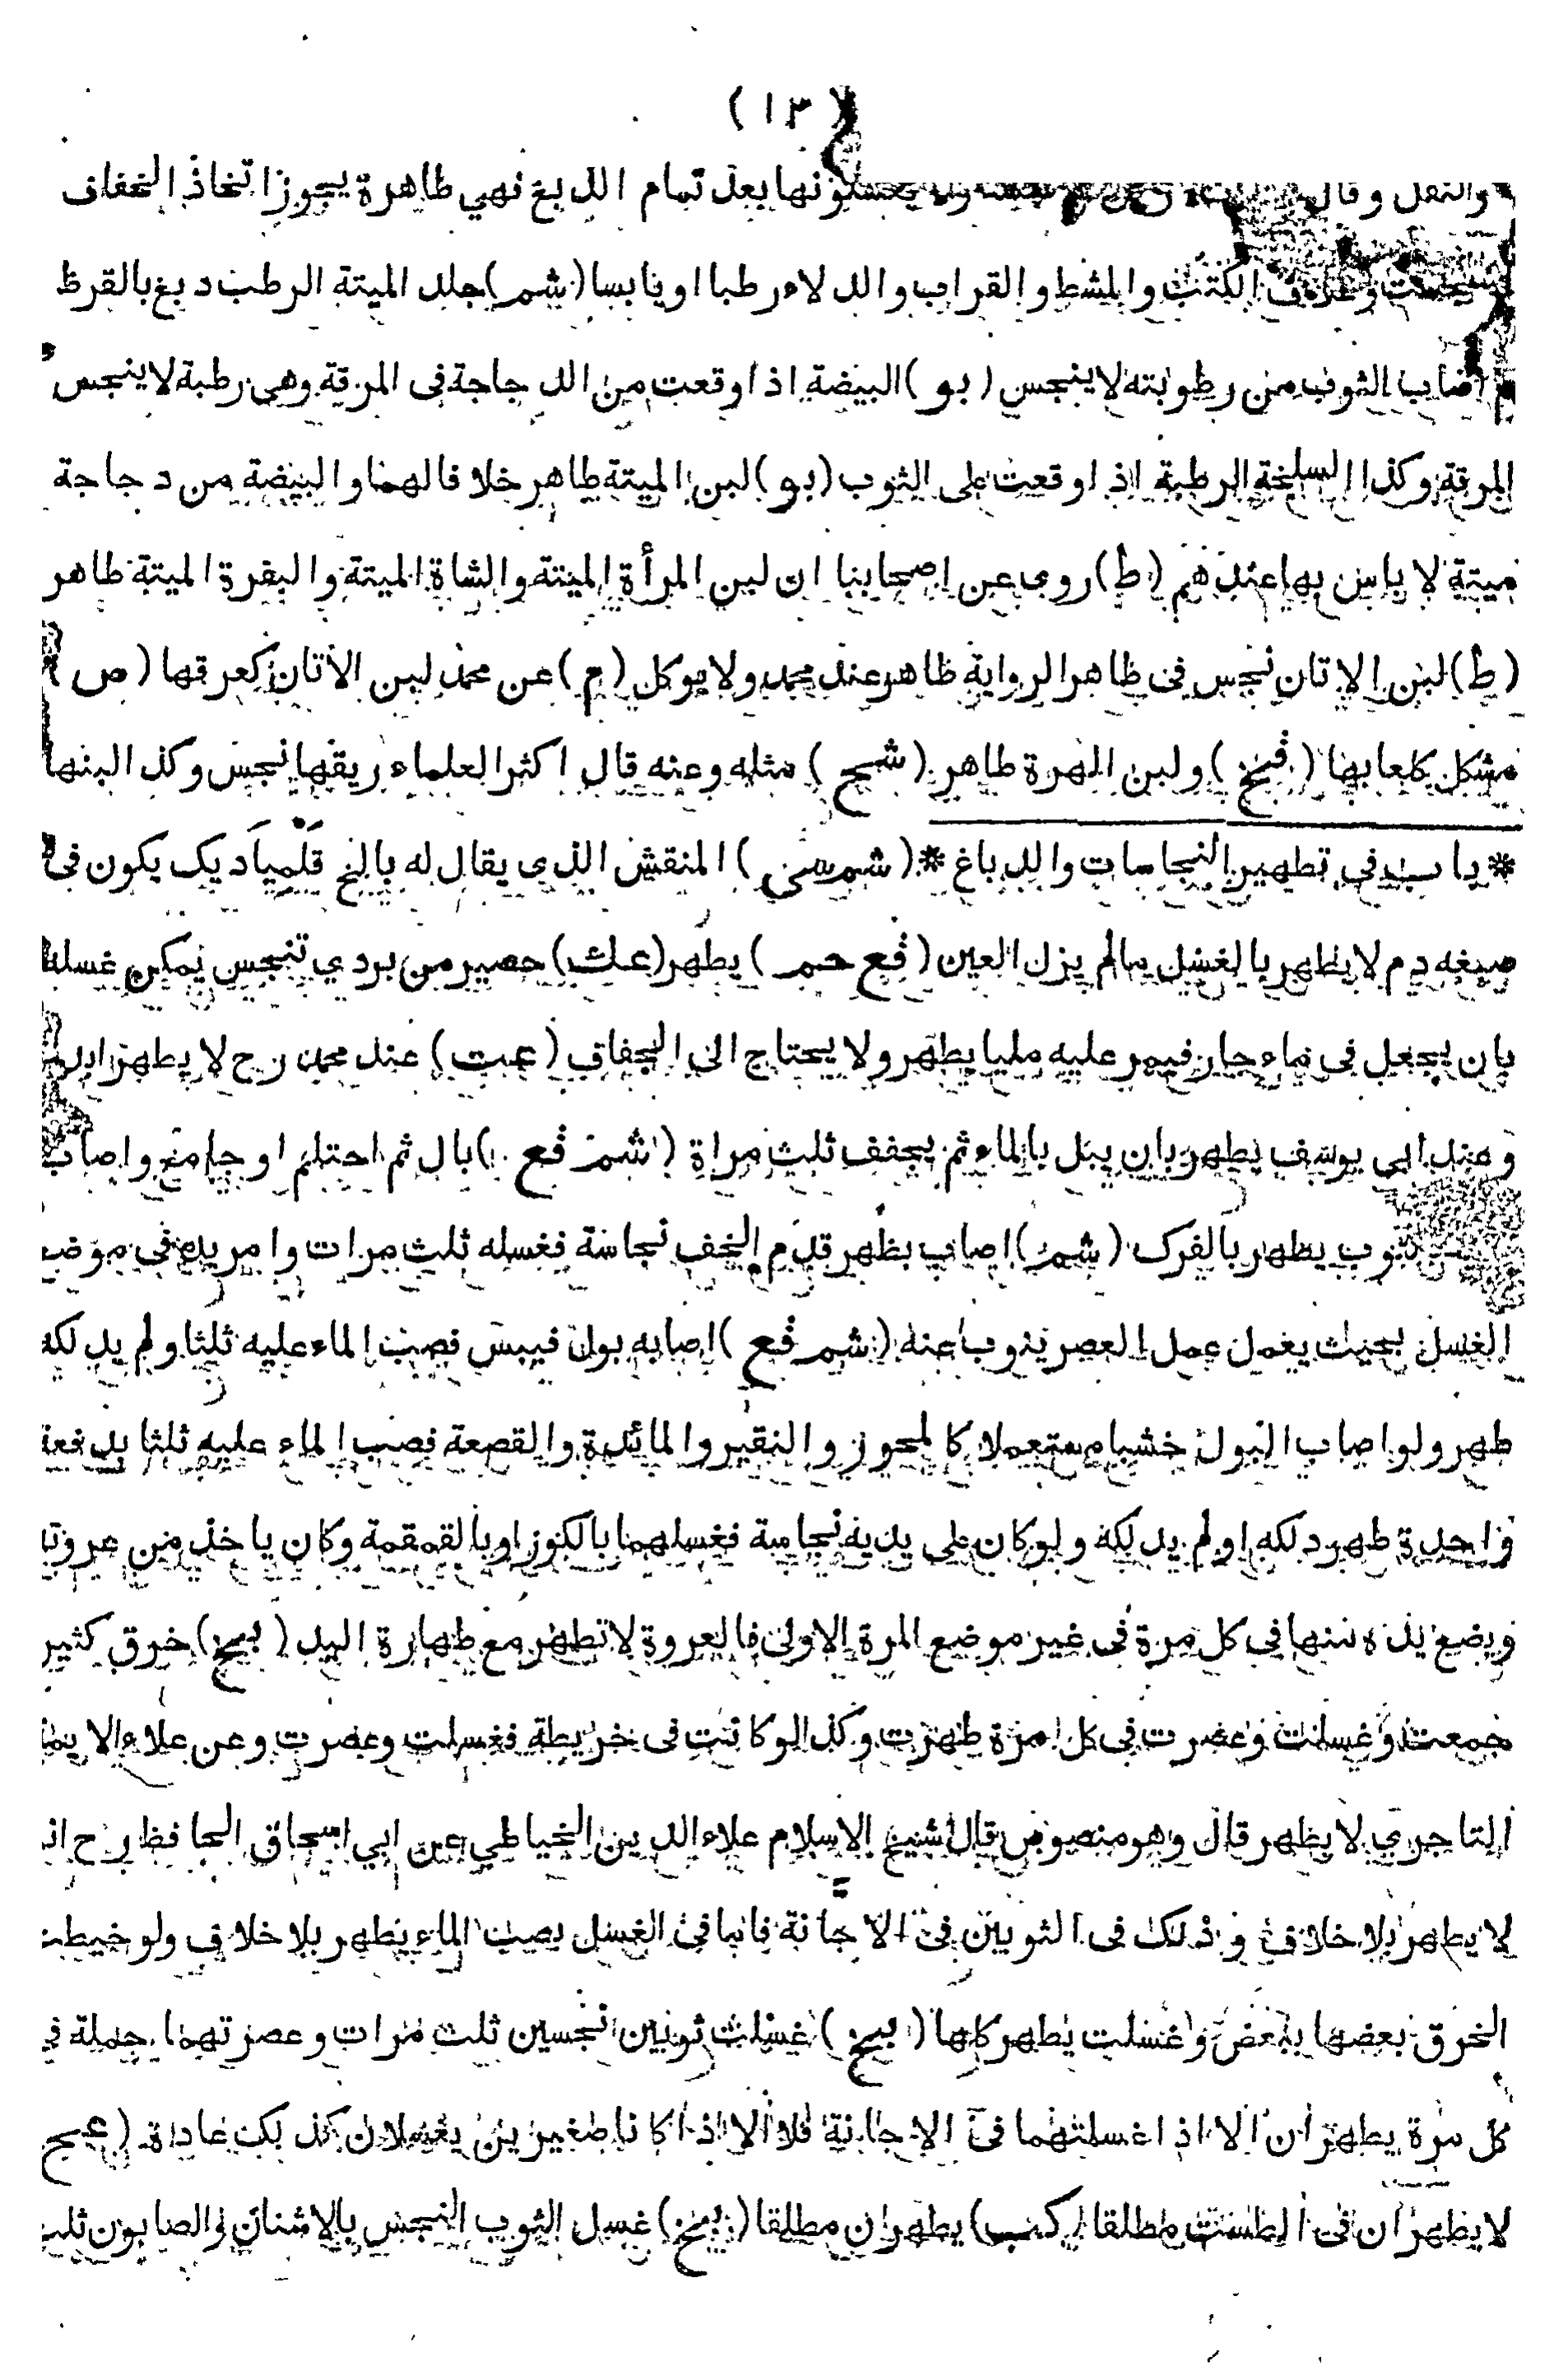 (١٣)
والنقل وقال يغسلونها بعد تمام الدبغ فهي طاهرة يجوز اتخاذ الخفاف
وغلاف الكتب والمشط والقراب والدلاء رطبا او يابسا (شم) جلد الميتة الرطب دبغ بالقرظ
اصاب الثوب من رطوبته لا ينجس (بو) البيضة اذا وقعت من الدجاجة فى المرقة وهى رطبة لا ينجس
المرقة وكذا السلخة الرطبة اذا وقعت على الثوب (بو) لبن الميتة طاهر خلافا لهما والبيضة من دجاجة
ميتة لا باس بها عندهم (ط) روى عن اصحابنا ان لبن المرأة الميتة والشاة الميتة والبقرة الميتة طاهر
(ط) لبن الاتان نجس فى ظاهر الرواية طاهر عند محمد ولا يوكل (م) عن محمد لبن الاتان كعرقها (ص)
مشكل كلعابها (فخ) ولبن الهرة طاهر (شح) مثله وعنه قال اكثر العلماء ريقها نجس وكذا لبنها
* باب فى تطهير النجاسات والدباغ * (شمسى) المنقش الذى يقال له بالخ قلمياديك يكون فى
صبغه دم لا يطهر بالغسل مالم يزل العين (فع حم) يطهر (عك) حصير من بردي تنجس يمكن غسله
بان يجعل فى ماء جار فيمر عليه مليا يطهر ولا يحتاج الى الجفاف (عت) عند محمد رح لا يطهر ابدا
وعند ابى يوسف يطهر بان يبل بالماء ثم يجفف ثلث مراة (شم فع) بال ثم احتلم او جامع واصاب
ثوب يطهر بالفرك (شم) اصاب بظهر قدم الخف نجاسة فغسله ثلث مرات وامر يده فى موضع
الغسل بحيث يعمل عمل العصر ينوب عنه (شم فع) اصابه بول فيبس فصب الماء عليه ثلثا ولم يدلكه
طهر ولو اصاب البول خشبا مستعملا كالمحوز والنقير والمائدة والقصعة فصب الماء عليه ثلثا بدفعة
واحدة طهر دلكه او لم يدلكه ولو كان على يديه نجاسة فغسلهما بالكوز او بالقمقمة وكان ياخذ من عروتها
ويضع يده منها فى كل مرة فى غير موضع المرة الاولى فالعروة لا تطهر مع طهارة اليد (بخ) خرق كثير
جمعت وغسلت وعصرت فى كل مرة طهرت وكذا لو كانت فى خريطة فغسلت وعصرت وعن علاء الايمة
التاجري لا يطهر قال وهو منصوص قال شيخ الاسلام علاء الدين الخياطي عن ابي اسحاق الحافظ رح انه
لا يطهر بلا خلاف وذلك فى الثوبين فى الاجانة فاما فى الغسل بصب الماء يطهر بلا خلاف ولو خيطت
الخرق بعضها ببعض وغسلت يطهر كلها (بخ) غسلت ثوبين نجسين ثلث مرات وعصرتهما جملة فى
كل مرة يطهران الا اذا غسلتهما فى الاجانة فلا الا اذا كانا صغيرين يغسلان كذلك عادة (عح)
لا يطهران فى الطست مطلقا (كب) يطهران مطلقا (بخ) غسل الثوب النجس بالاشنان والصابون ثلث